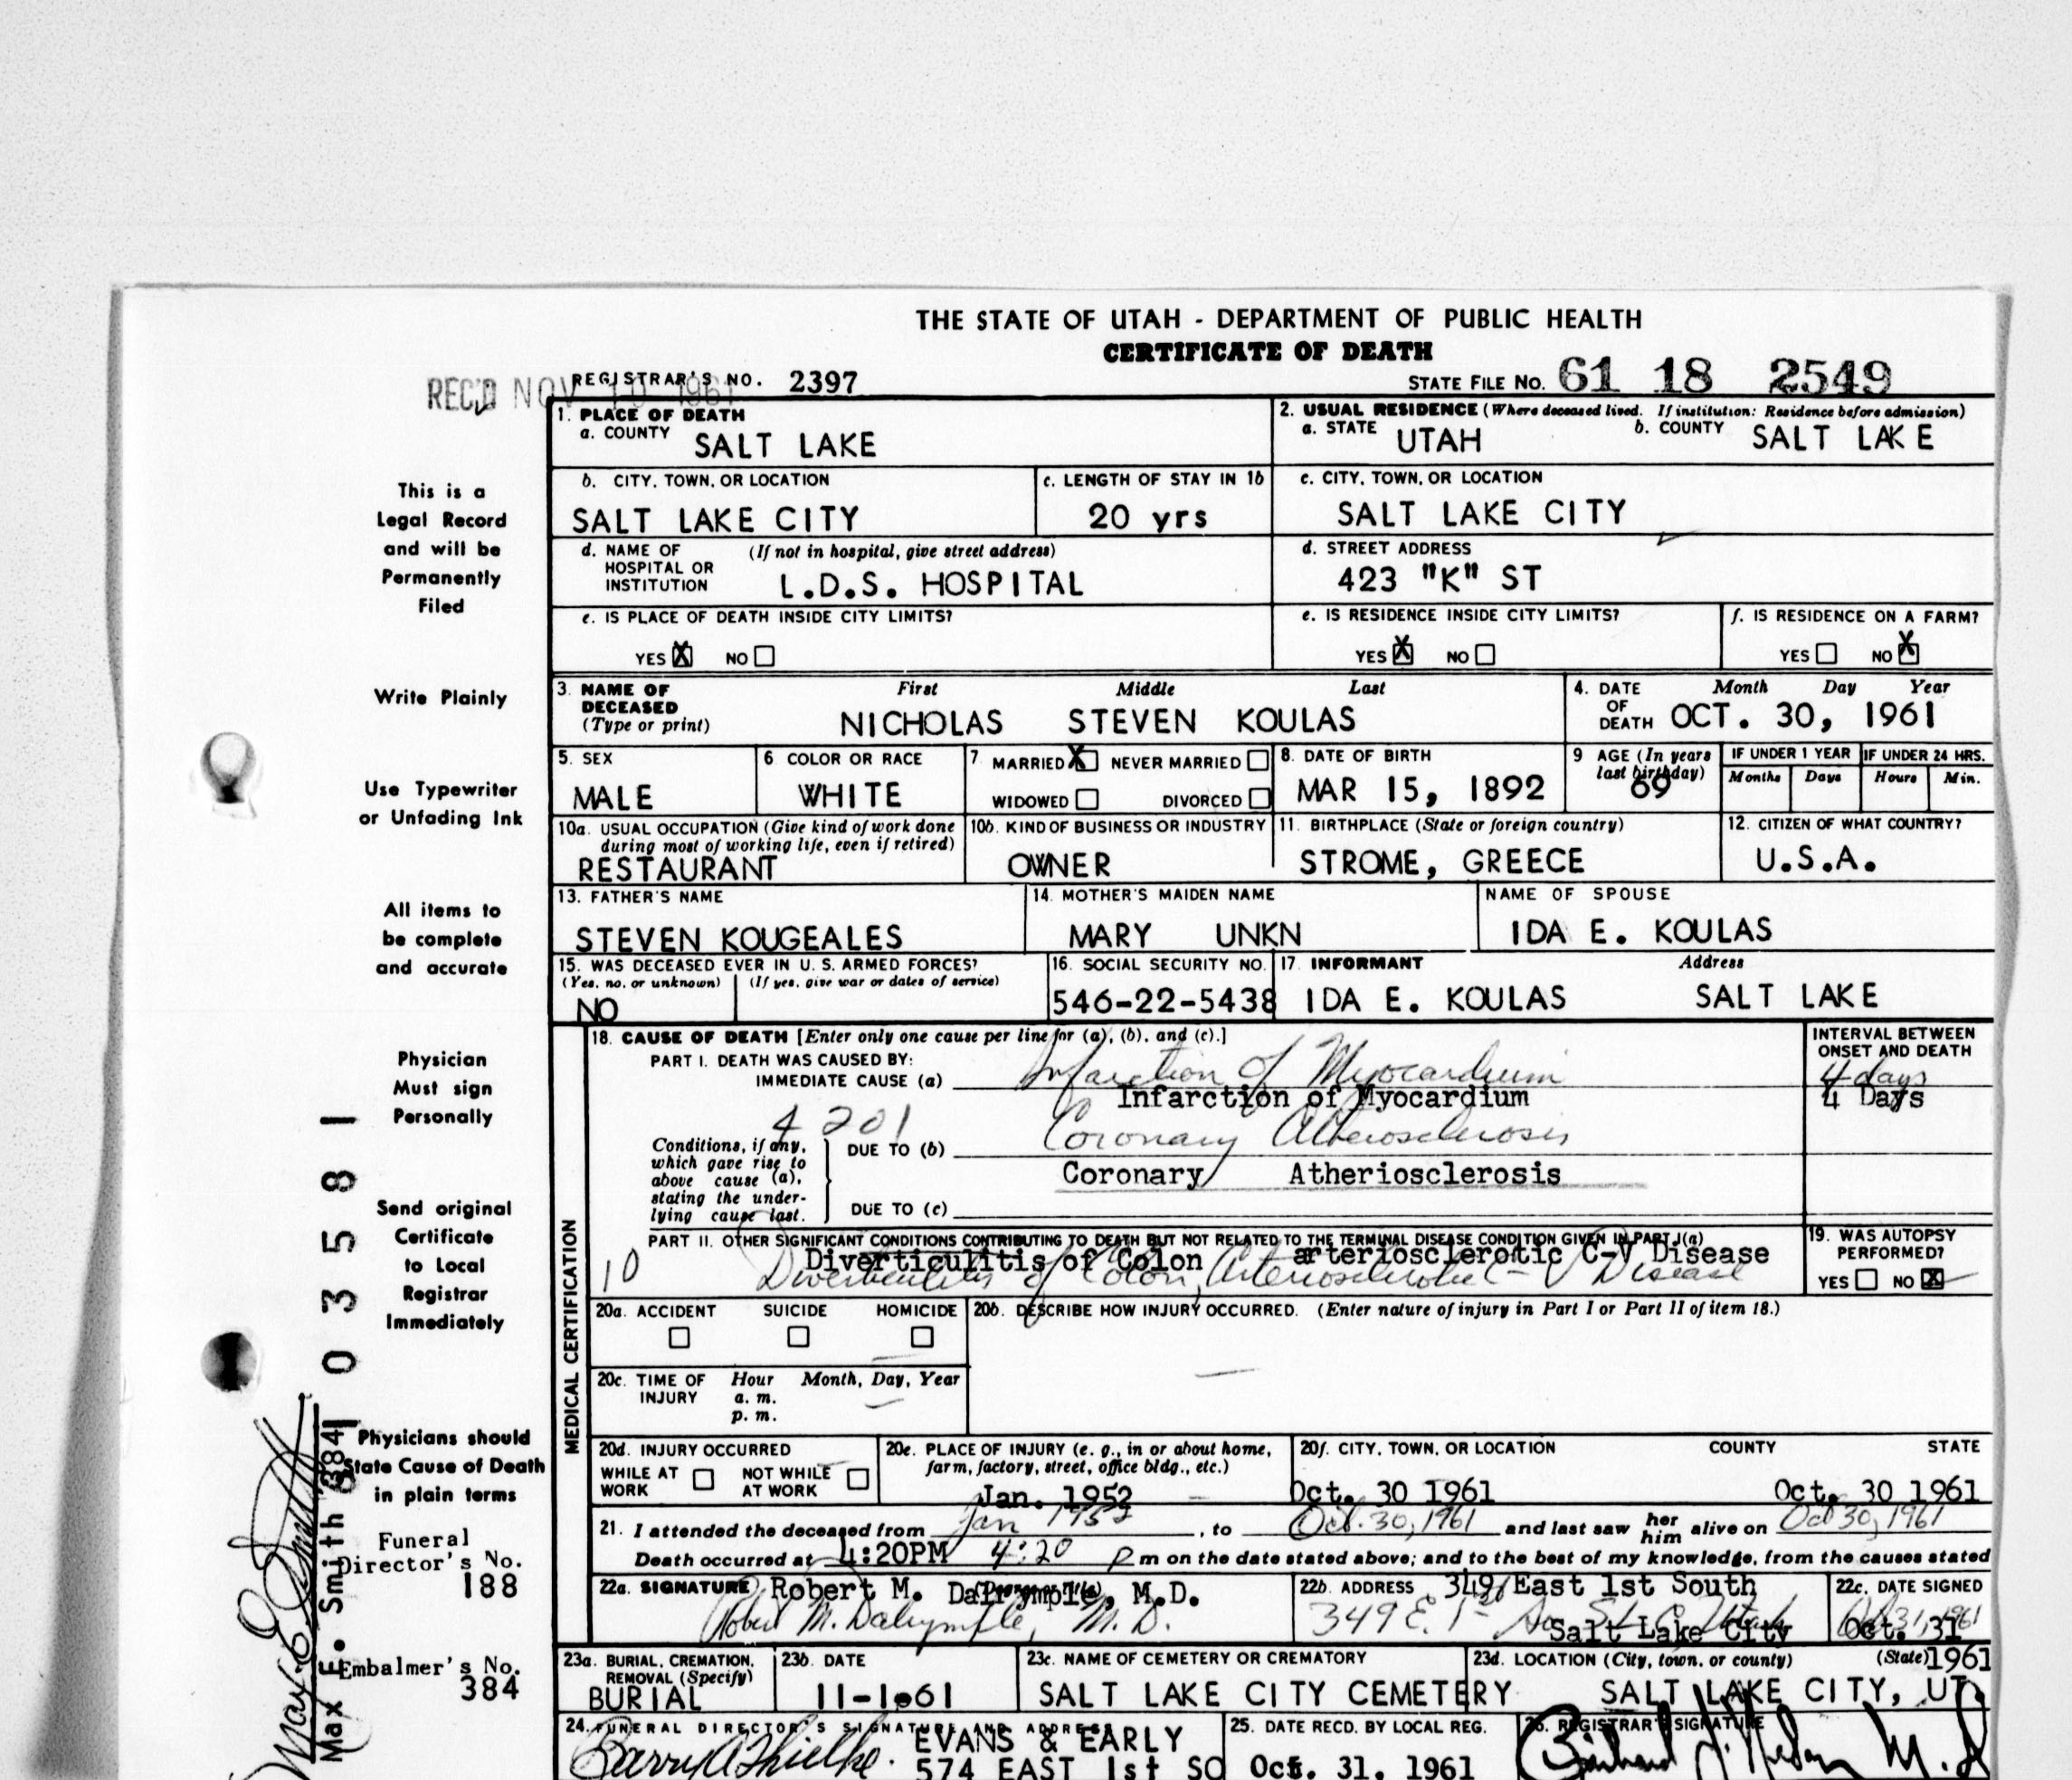 THE STATE OF UTAH - DEPARTMENT OF PUBLIC HEALTH
CERTIFICATE OF DEATH
REC'D NOV 10 1961
REGISTRAR'S NO. 2397
STATE FILE NO. 61 18 2549
1. PLACE OF DEATH
a. COUNTY SALT LAKE
2. USUAL RESIDENCE (Where deceased lived. If institution: Residence before admission)
a. STATE UTAH b. COUNTY SALT LAKE
b. CITY, TOWN, OR LOCATION
SALT LAKE CITY
c. LENGTH OF STAY IN 1b
20 yrs
c. CITY, TOWN, OR LOCATION
SALT LAKE CITY
d. NAME OF (If not in hospital, give street address)
HOSPITAL OR
INSTITUTION L.D.S. HOSPITAL
d. STREET ADDRESS
423 "K" ST
e. IS PLACE OF DEATH INSIDE CITY LIMITS?
YES X NO
e. IS RESIDENCE INSIDE CITY LIMITS?
YES X NO
f. IS RESIDENCE ON A FARM?
YES NO X
3. NAME OF DECEASED (Type or print)
First Middle Last
NICHOLAS STEVEN KOULAS
4. DATE OF DEATH
Month Day Year
OCT. 30, 1961
5. SEX
MALE
6 COLOR OR RACE
WHITE
7 MARRIED X NEVER MARRIED
WIDOWED DIVORCED
8. DATE OF BIRTH
MAR 15, 1892
9 AGE (In years last birthday)
69
IF UNDER 1 YEAR IF UNDER 24 HRS.
Months Days Hours Min.
10a. USUAL OCCUPATION (Give kind of work done
during most of working life, even if retired)
RESTAURANT
10b. KIND OF BUSINESS OR INDUSTRY
OWNER
11. BIRTHPLACE (State or foreign country)
STROME, GREECE
12. CITIZEN OF WHAT COUNTRY?
U.S.A.
13. FATHER'S NAME
STEVEN KOUGEALES
14. MOTHER'S MAIDEN NAME
MARY UNKN
NAME OF SPOUSE
IDA E. KOULAS
15. WAS DECEASED EVER IN U. S. ARMED FORCES?
(Yes, no, or unknown) (If yes, give war or dates of service)
NO
16. SOCIAL SECURITY NO.
546-22-5438
17. INFORMANT Address
IDA E. KOULAS SALT LAKE
MEDICAL CERTIFICATION
18. CAUSE OF DEATH [Enter only one cause per line for (a), (b), and (c).]
PART I. DEATH WAS CAUSED BY:
IMMEDIATE CAUSE (a) Infarction of Myocardium
Infarction of Myocardium
INTERVAL BETWEEN
ONSET AND DEATH
4 days
4 Days
4201
Conditions, if any,
which gave rise to
above cause (a),
stating the under-
lying cause last.
DUE TO (b) Coronary Atherosclerosis
Coronary Atheriosclerosis
DUE TO (c)
PART II. OTHER SIGNIFICANT CONDITIONS CONTRIBUTING TO DEATH BUT NOT RELATED TO THE TERMINAL DISEASE CONDITION GIVEN IN PART I(a)
Diverticulitis of Colon arteriosclerotic C-V Disease
10 Diverticulitis of Colon, Arteriosclerotic C-V Disease
19. WAS AUTOPSY
PERFORMED?
YES NO X
20a. ACCIDENT SUICIDE HOMICIDE
20b. DESCRIBE HOW INJURY OCCURRED. (Enter nature of injury in Part I or Part II of item 18.)
20c. TIME OF INJURY
Hour Month, Day, Year
a. m.
p. m.
20d. INJURY OCCURRED
WHILE AT WORK NOT WHILE AT WORK
20e. PLACE OF INJURY (e. g., in or about home,
farm, factory, street, office bldg., etc.)
20f. CITY, TOWN, OR LOCATION COUNTY STATE
Jan. 1952 Oct. 30 1961 Oct. 30 1961
21. I attended the deceased from Jan 1952, to Oct. 30, 1961 and last saw her him alive on Oct 30, 1961
Death occurred at 4:20PM 4:20 P m on the date stated above; and to the best of my knowledge, from the causes stated
22a. SIGNATURE Robert M. Dalrymple, M.D.
Robert M. Dalrymple, M. D.
22b. ADDRESS 349 East 1st South
349 E. 1st So
Salt Lake City
22c. DATE SIGNED
Oct 31, 1961
Oct. 31
1961
23a. BURIAL, CREMATION,
REMOVAL (Specify)
BURIAL
23b. DATE
11-1-61
23c. NAME OF CEMETERY OR CREMATORY
SALT LAKE CITY CEMETERY
23d. LOCATION (City, town, or county) (State)
SALT LAKE CITY, UT.
24. FUNERAL DIRECTOR'S SIGNATURE AND ADDRESS
EVANS & EARLY
574 EAST 1st SO
25. DATE RECD. BY LOCAL REG.
Oct. 31, 1961
26. REGISTRAR'S SIGNATURE
This is a
Legal Record
and will be
Permanently
Filed
Write Plainly
Use Typewriter
or Unfading Ink
All items to
be complete
and accurate
Physician
Must sign
Personally
Send original
Certificate
to Local
Registrar
Immediately
Physicians should
State Cause of Death
in plain terms
Funeral
Director's No.
188
Embalmer's No.
384
03581
Max E. Smith
Max E. Smith 384